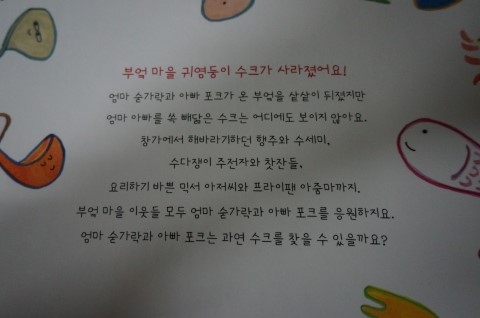 부엌 마을 귀염둥이 수크가 사라졌어요!
엄마 숟가락과 아빠 포크가 온 부엌을 샅샅이 뒤졌지만
엄마 아빠를 쏙 빼닮은 수크는 어디에도 보이지 않아요.
창가에서 해바라기하던 행주와 수세미,
수다쟁이 주전자와 찻잔들,
요리하기 바쁜 믹서 아저씨와 프라이팬 아줌마까지.
부엌 마을 이웃들 모두 엄마 숟가락과 아빠 포크를 응원하지요.
엄마 숟가락과 아빠 포크는 과연 수크를 찾을 수 있을까요?